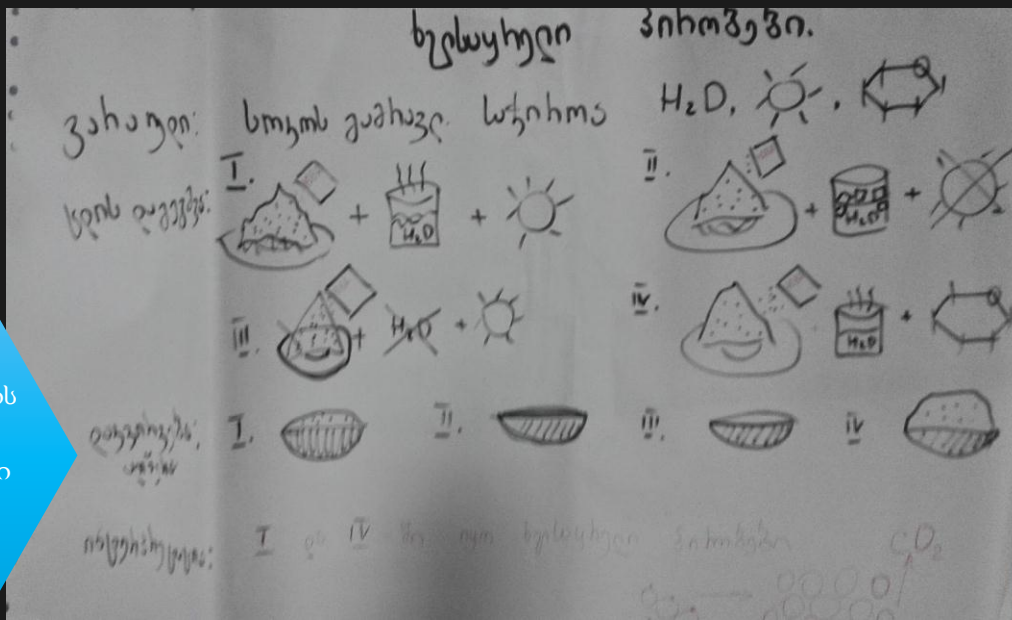 ხელსაყრელი პირობები.
ვარაუდი: სოკოს გამრავლ. საჭიროა H₂O,
ცდის დაგეგმვა: I. II.
H₂O H₂O
III. H₂O IV. H₂O
დაკვირვება: I. II. III. IV
I და IV ში იყო ხელსაყრელი პირობები CO₂
ის
ი